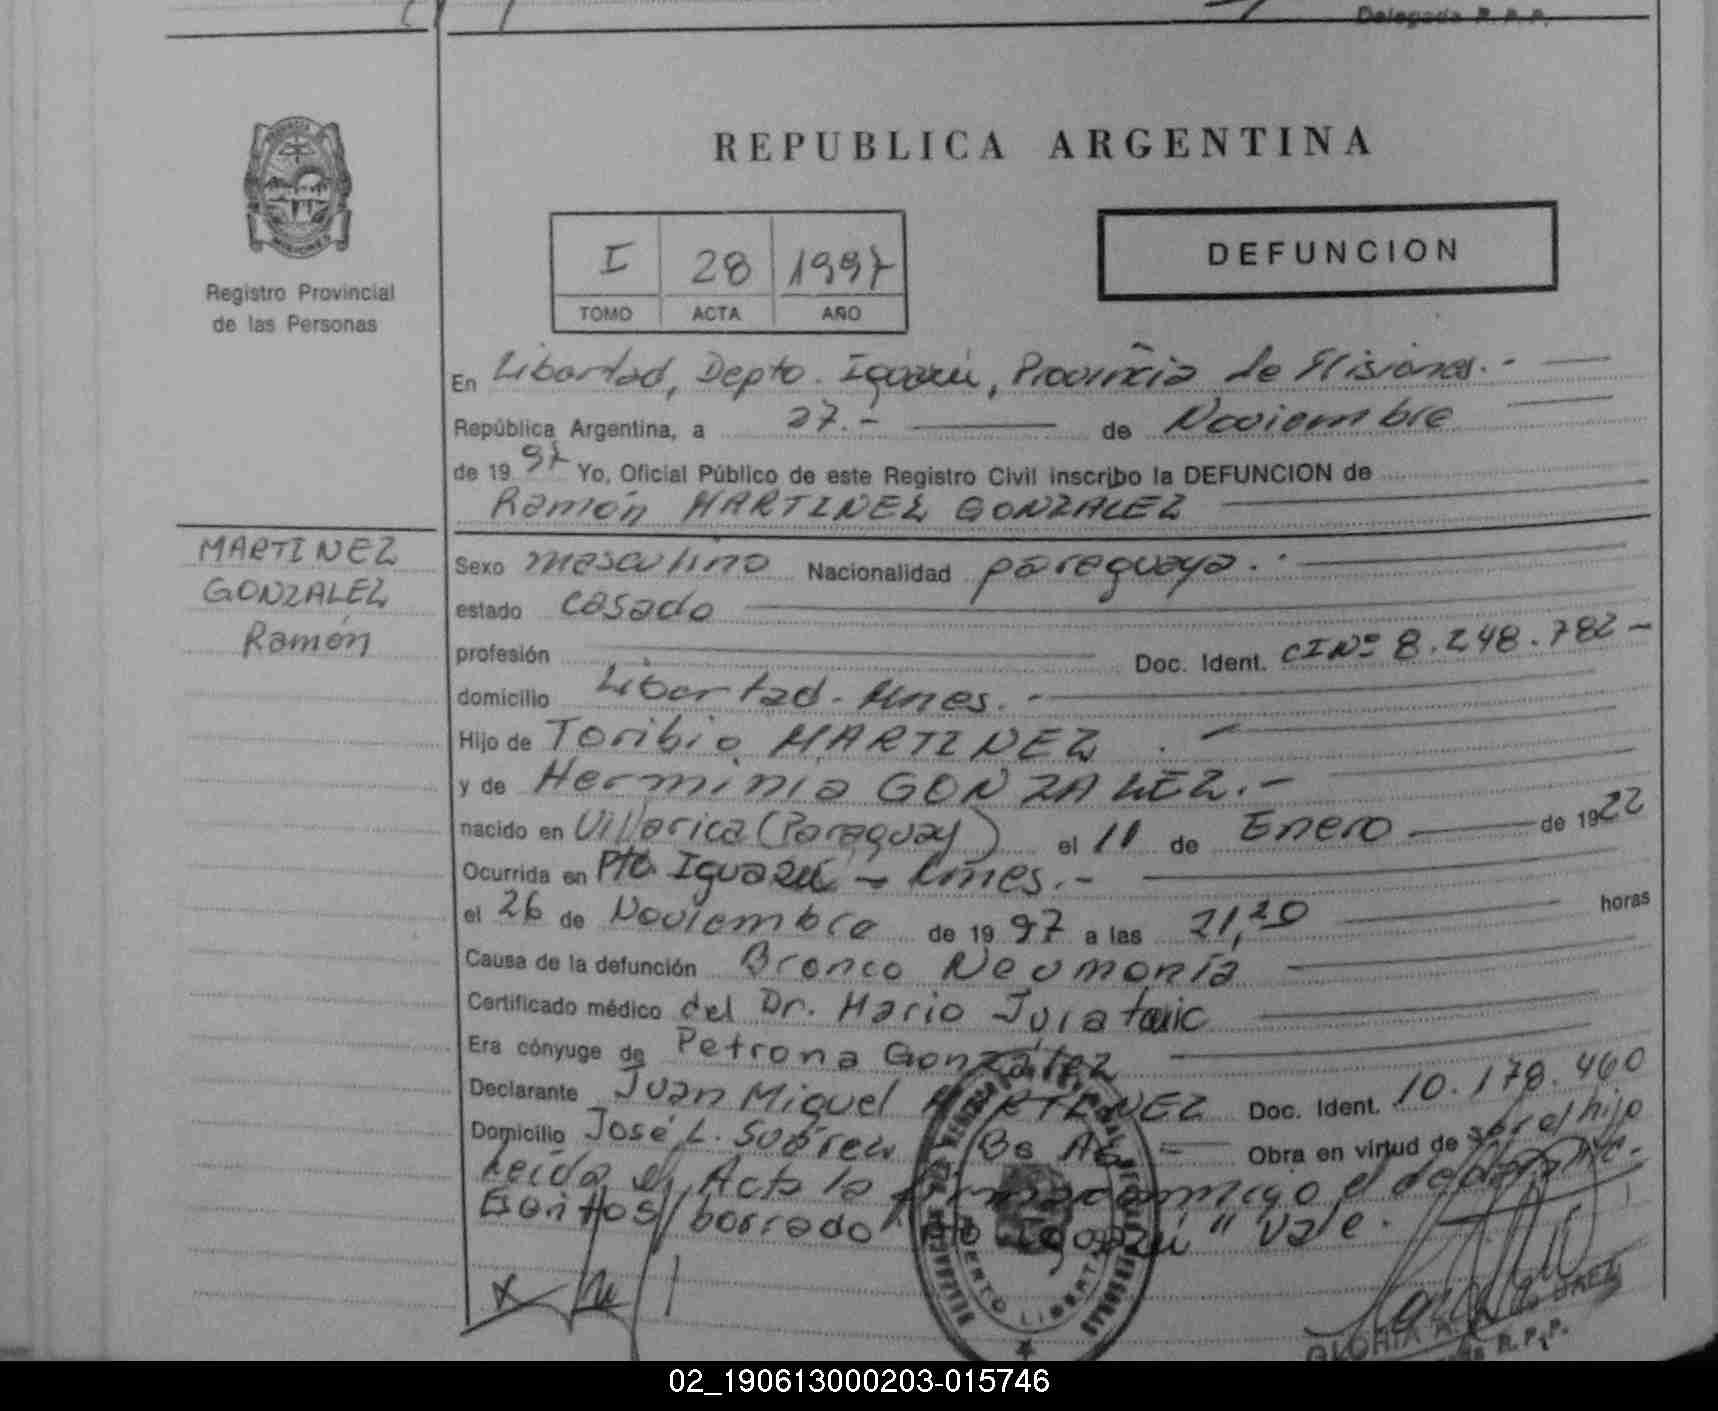 Delegada R. P. P.
PROVINCIA
MISIONES
Registro Provincial
de las Personas
REPUBLICA ARGENTINA
I 28 1997
TOMO ACTA AÑO
DEFUNCION
En Libertad, Depto. Iguazú, Provincia de Misiones.-
República Argentina, a 27.- de Noviembre
de 19 97 Yo, Oficial Público de este Registro Civil inscribo la DEFUNCION de
Ramón MARTINEZ GONZALEZ
MARTINEZ
GONZALEZ
Ramón
Sexo masculino Nacionalidad paraguaya.-
estado casado
profesión Doc. Ident. CI Nº 8.248.782-
domicilio Libertad - Mnes.-
Hijo de Toribio MARTINEZ.-
y de Herminia GONZALEZ.-
nacido en Villarica (Paraguay) el 11 de Enero de 1922
Ocurrida en Pto. Iguazú - Mnes.-
el 26 de Noviembre de 19 97 a las 21,20 horas
Causa de la defunción Bronco Neumonía
Certificado médico del Dr. Mario
Era cónyuge de Petrona González
Declarante Juan Miguel MARTINEZ Doc. Ident. 10.178.460
Domicilio José L. Suárez Bs As Obra en virtud de ser el hijo
Leída el Acta la firma conmigo el declarante.-
Escritos/borrado "Pto Iguazú" Vale.
PUERTO LIBERTAD
GLORIA
R. P. P.
02_190613000203-015746